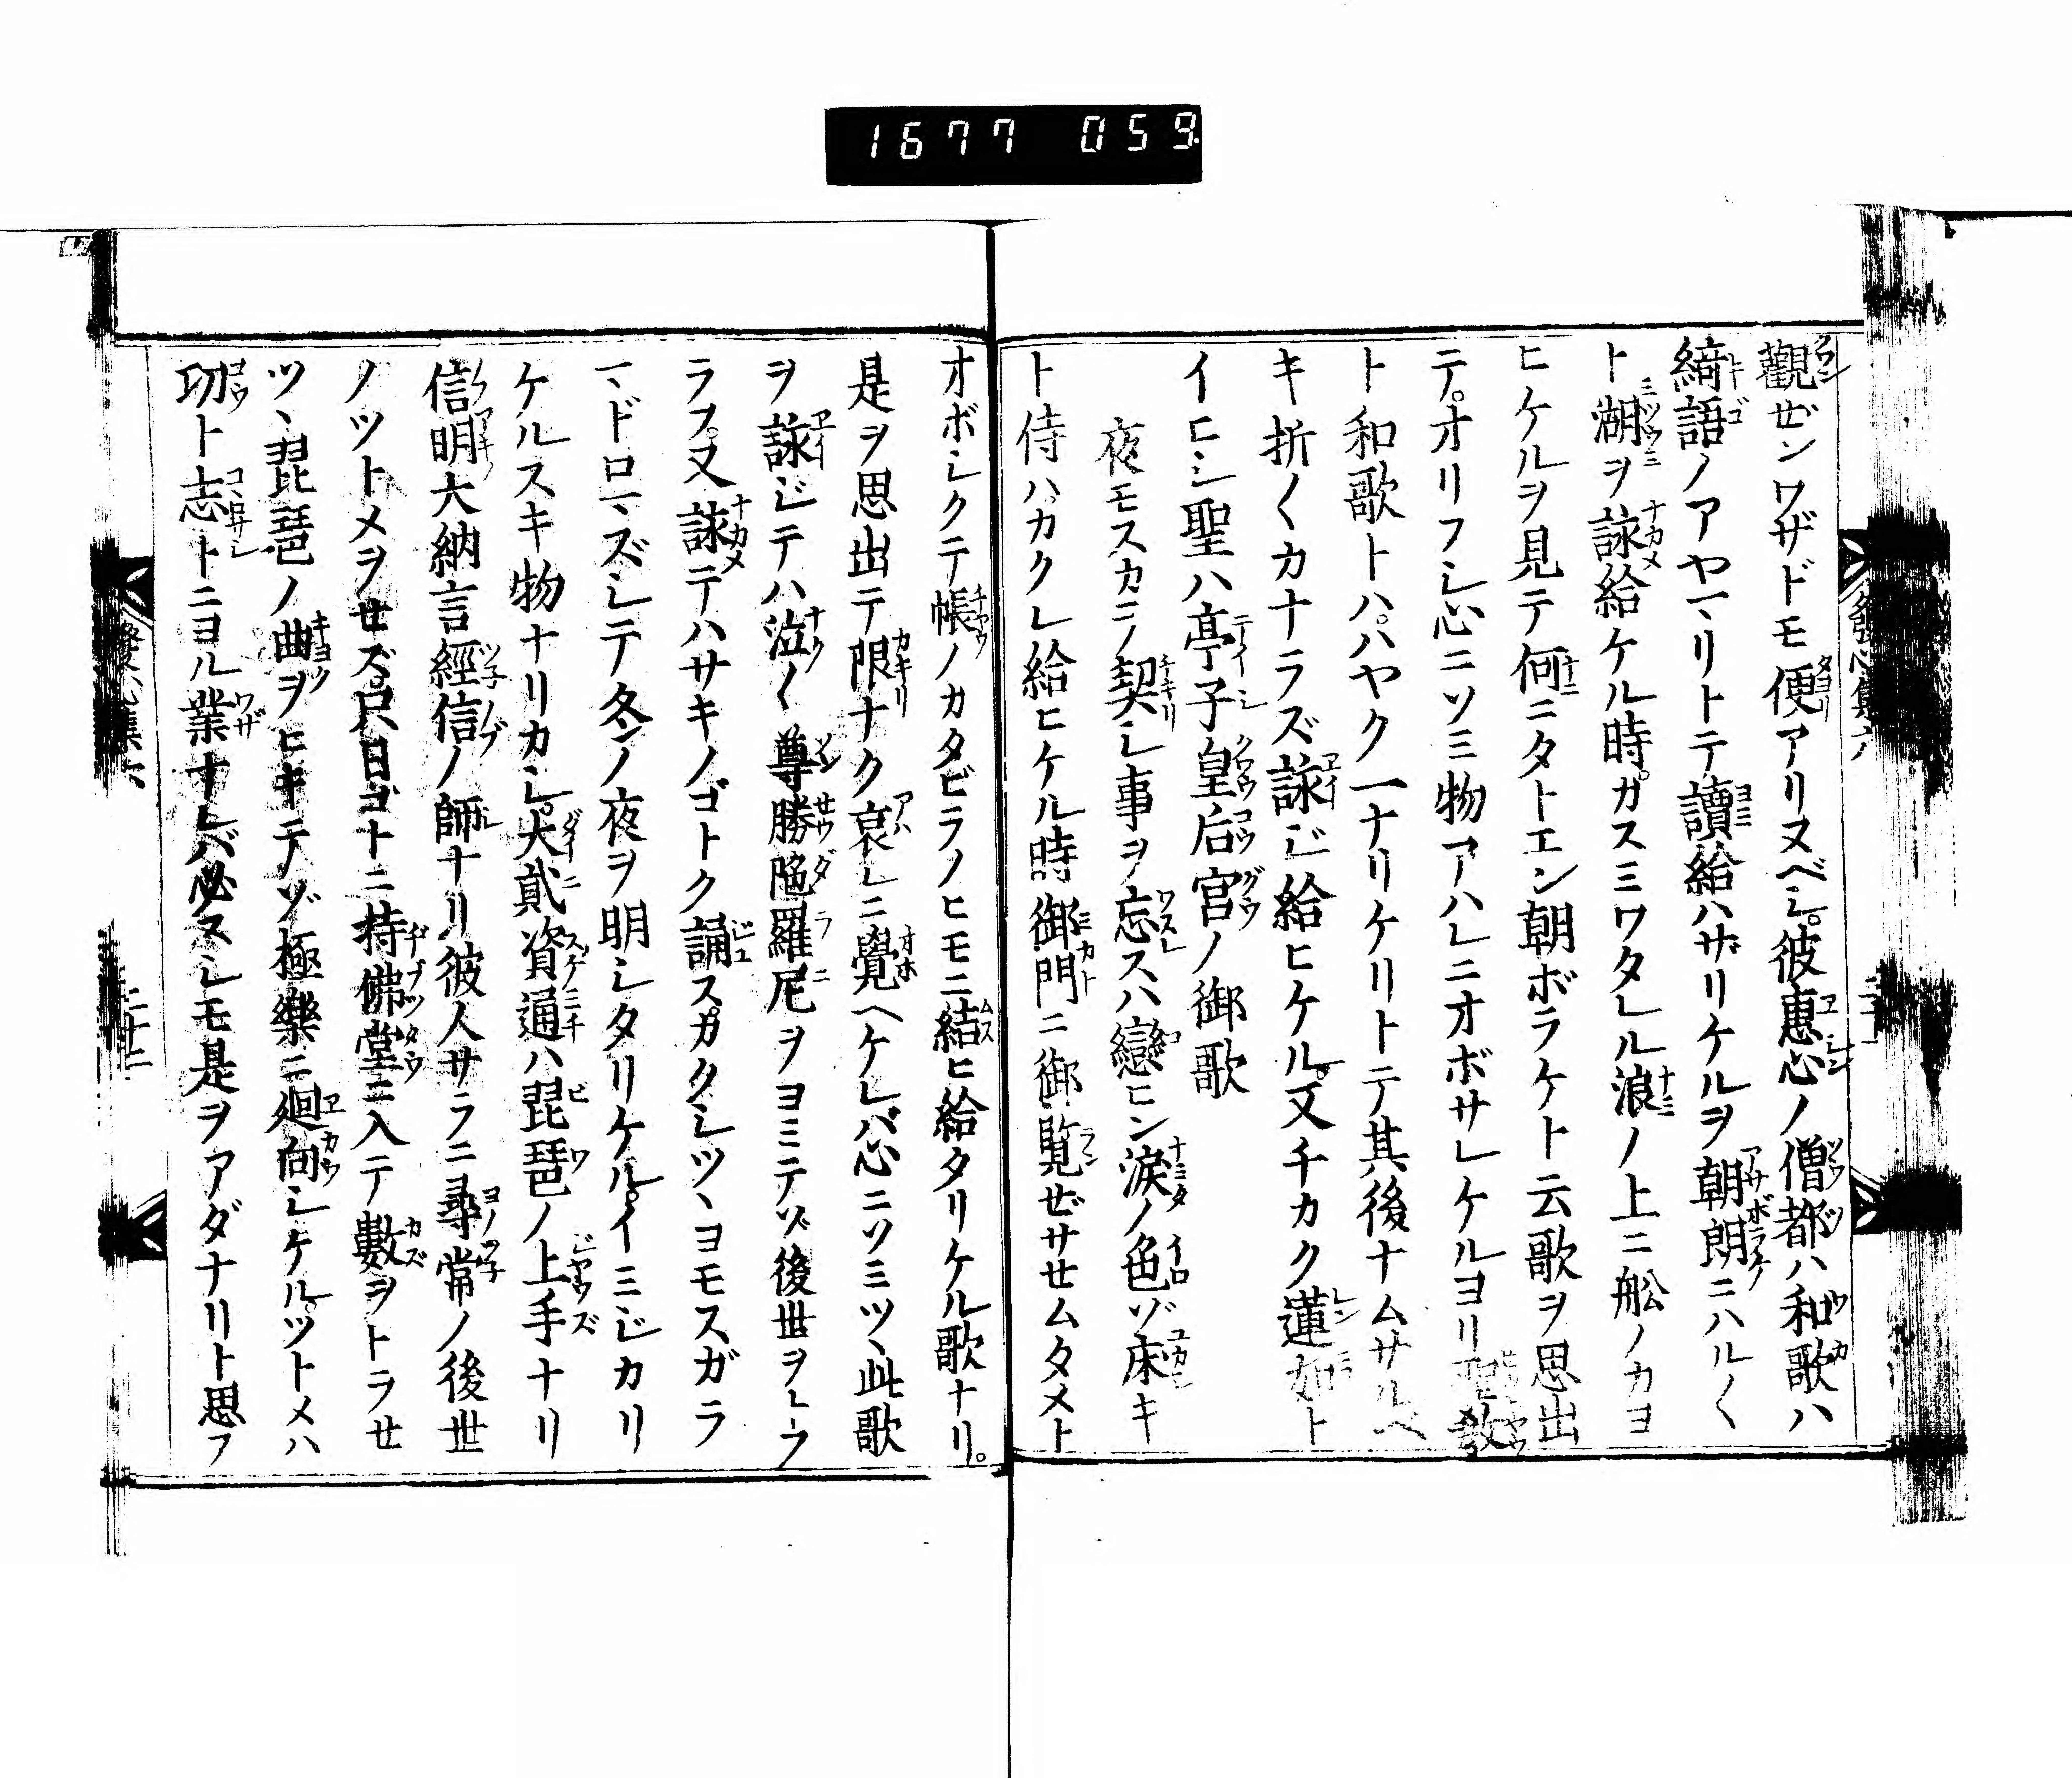 1677 059
觀ゼンワザドモ便アリヌベシ。彼惠心ノ僧都ハ和歌ハ
綺語ノアヤマリトテ讀給ハザリケルヲ朝朗ニハル〱
ト湖ヲ詠給ケル時。カスミワタレル浪ノ上ニ舩ノカヨ
ヒケルヲ見テ何ニタトエン朝ボラケト云歌ヲ思出
テ。オリフシ心ニソミ物アハレニオボサレケルヨリ聖教
ト和歌トハ。ハヤク一ナリケリトテ其後ナムサルベ
キ折〱カナラズ詠ジ給ヒケル。又チカク蓮如ト
イヒシ聖ハ亭子皇后宮ノ御歌
夜モスカラ契シ事ヲ忘スハ戀ヒン淚ノ色ゾ床キ
ト侍ハ。カクレ給ヒケル時御門ニ御覧ゼサセムタメト
オボシクテ帳ノカタビラノヒモニ結ヒ給タリケル歌ナリ。
是ヲ思出テ限ナク哀レニ覺ヘケレバ心ニソミツヽ此歌
ヲ詠ジテハ泣〱尊勝陁羅尼ヲヨミテゾ後世ヲトフ
ラフ。又詠テハサキノゴトク誦ス。カクシツヽヨモスガラ
マドロマズシテ冬ノ夜ヲ明シタリケル。イミジカリ
ケルスキ物ナリカシ。大貳資通ハ琵琶ノ上手ナリ
信明大納言經信ノ師ナリ彼人サラニ尋常ノ後世
ノツトメヲせズ。只日ゴトニ持佛堂ニ入テ數ヲトラせ
ツヽ琵琶ノ曲ヲヒキテゾ極樂ニ廻向シケル。ツトメハ
功ト志トニヨル業ナレバ必スシモ是ヲアダナリト思フ
發心集六
二十二